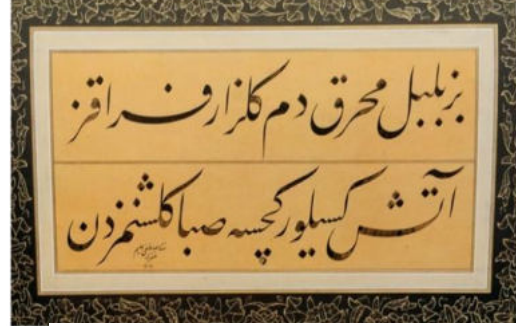 بز بلبل محرق دم گلزار فراقز
آتش كسیلور كچسه صبا گلشنمزدن